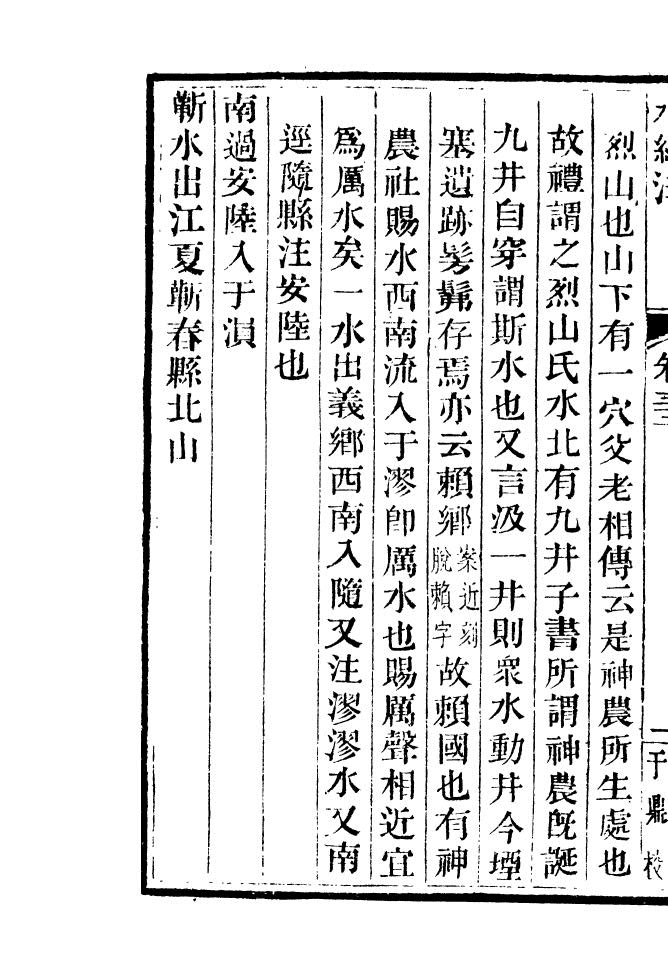 水經注 卷三十二 二 于鼎校
烈山也山下有一穴父老相傳云是神農所生處也
故禮謂之烈山氏水北有九井子書所謂神農既誕
九井自穿謂斯水也又言汲一井則衆水動井今堙
塞遺跡髣髴存焉亦云賴鄉案近刻脫賴字故賴國也有神
農社賜水西南流入于漻卽厲水也賜厲聲相近宜
爲厲水矣一水出義鄉西南入隨又注漻漻水又南
逕隨縣注安陸也
南過安陸入于溳
蘄水出江夏蘄春縣北山